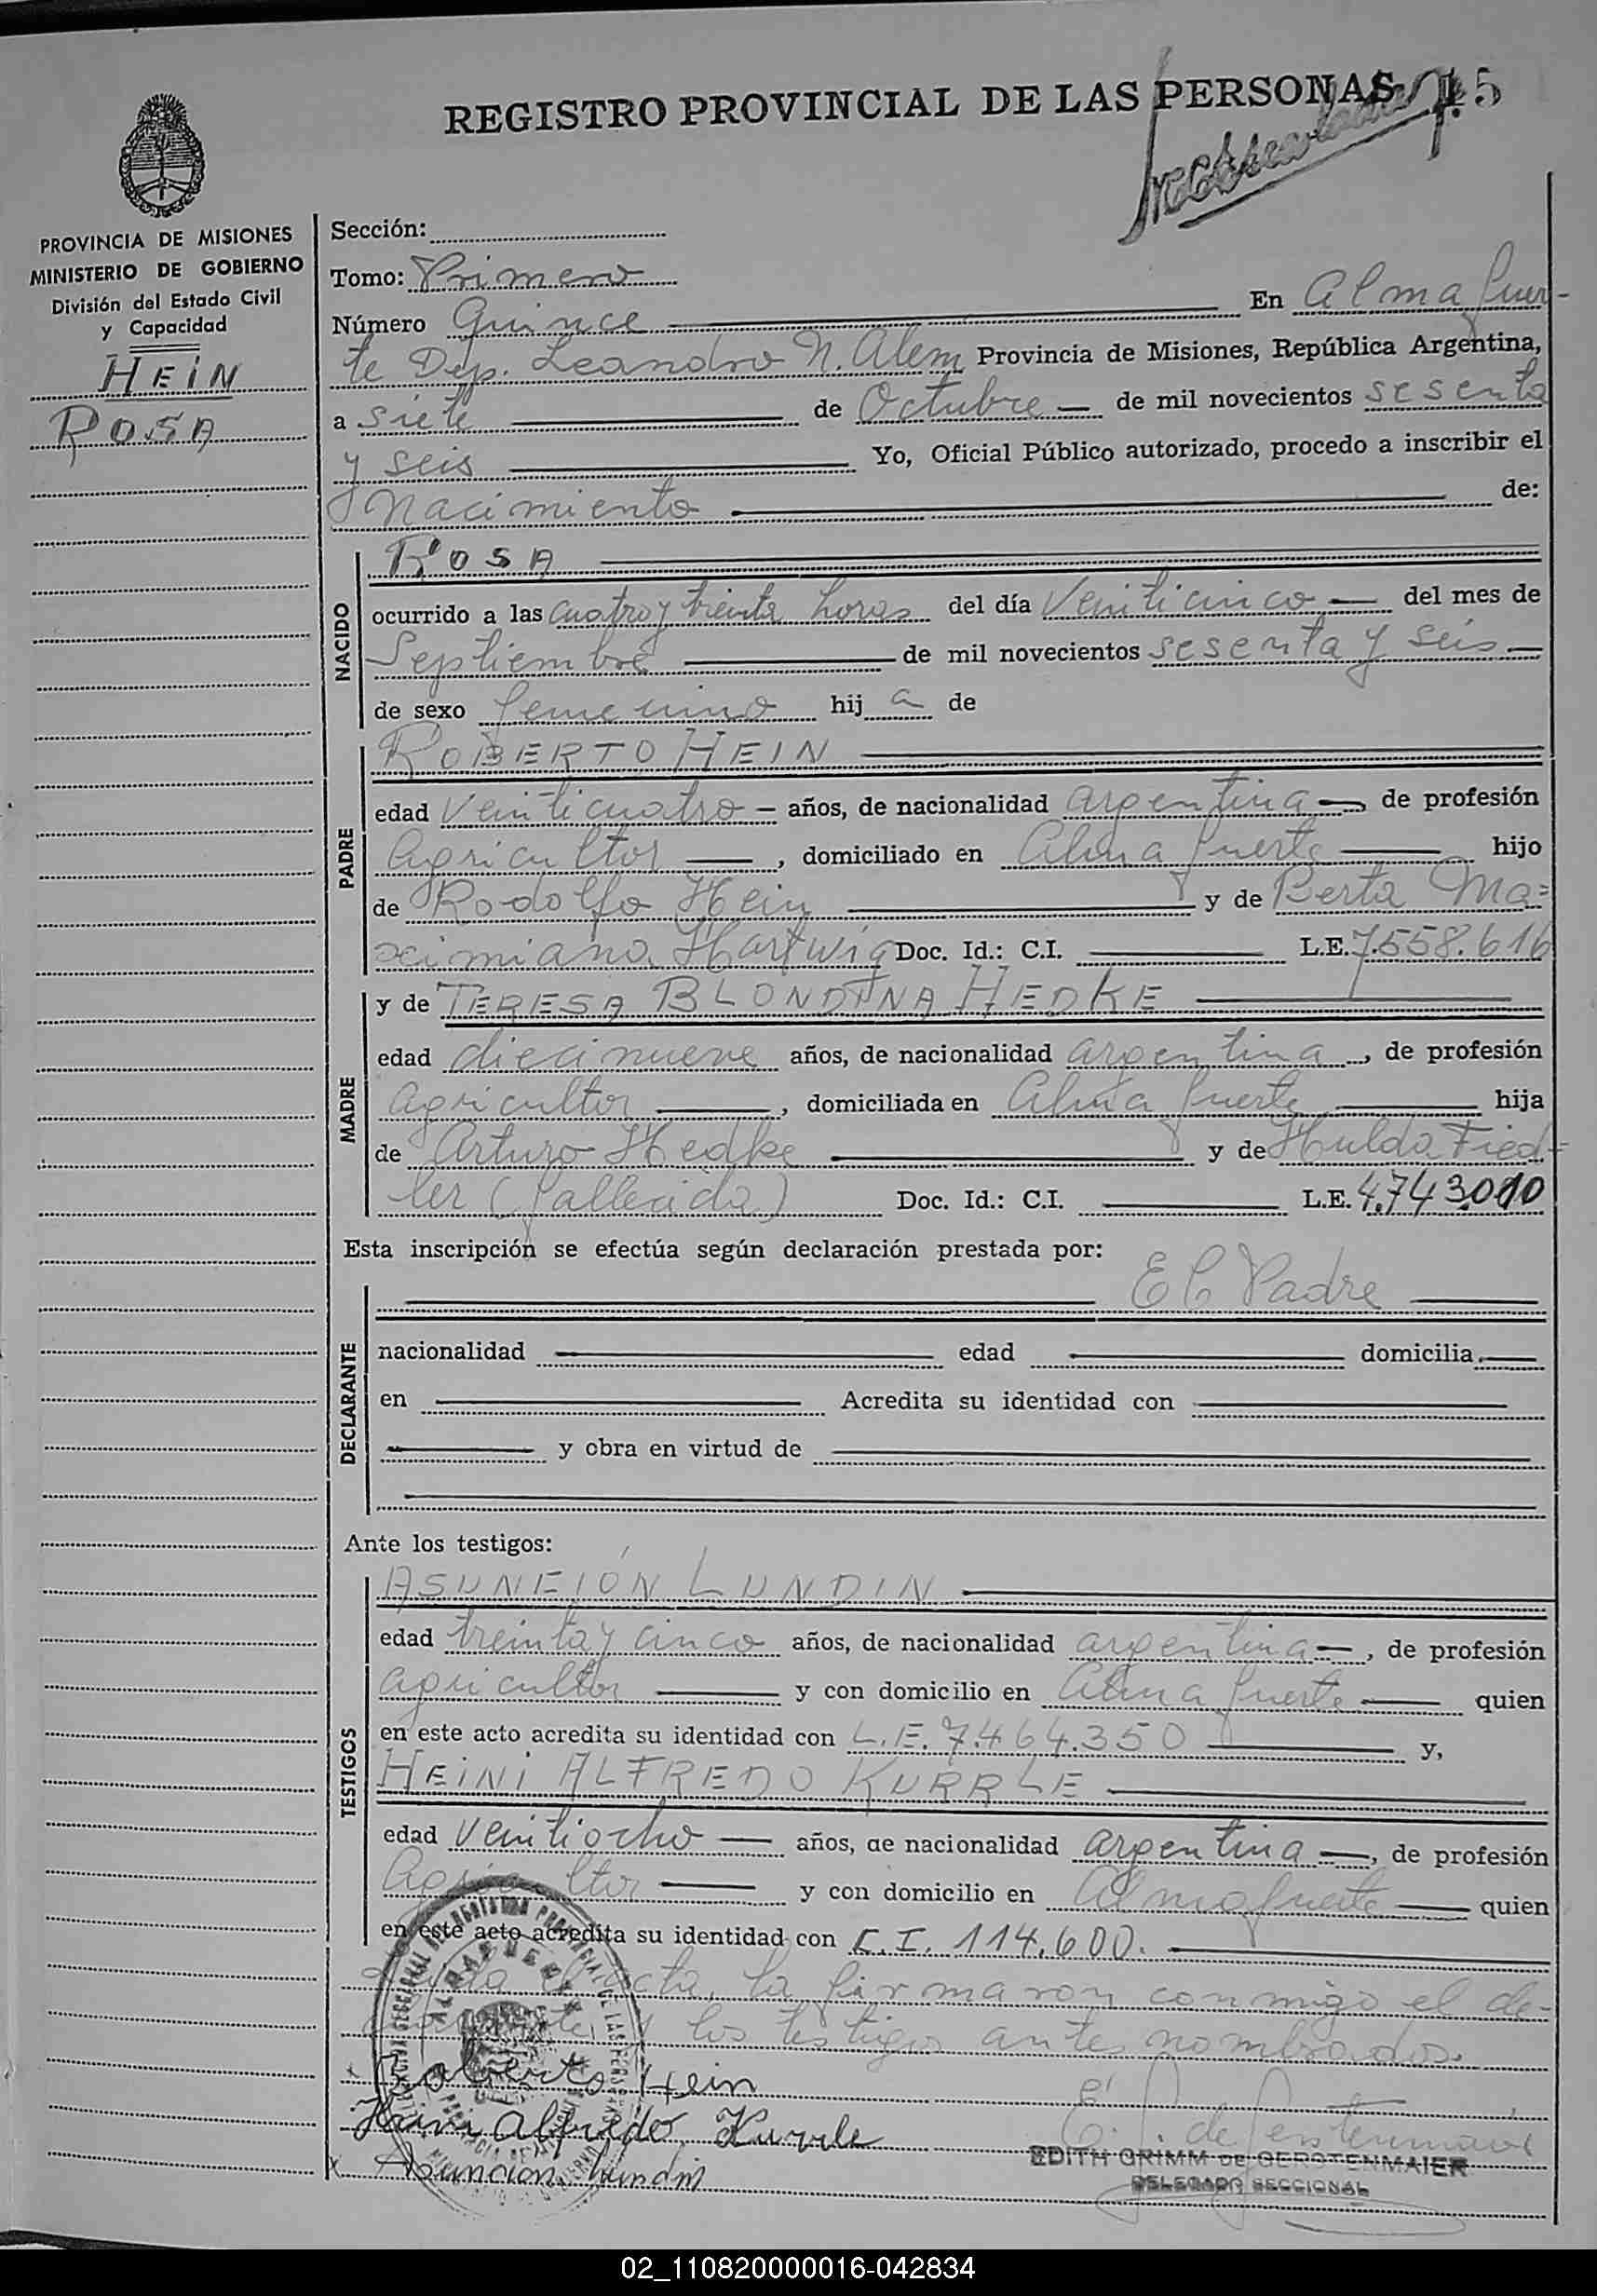 REGISTRO PROVINCIAL DE LAS PERSONAS 15
PROVINCIA DE MISIONES
MINISTERIO DE GOBIERNO
División del Estado Civil
y Capacidad
HEIN
ROSA
Sección:
Tomo: Primero
Número Quince En Almafuer-
te Dep. Leandro N. Alem Provincia de Misiones, República Argentina,
a siete de Octubre de mil novecientos sesenta
y seis Yo, Oficial Público autorizado, procedo a inscribir el
Nacimiento de:
NACIDO
ROSA
ocurrido a las cuatro y treinta horas del día Veinticinco del mes de
Septiembre de mil novecientos sesenta y seis
de sexo femenino hij a de
PADRE
ROBERTO HEIN
edad Veinticuatro años, de nacionalidad argentina, de profesión
agricultor, domiciliado en Almafuerte hijo
de Rodolfo Hein y de Berta Ma=
ximiana Hartwig Doc. Id.: C.I. L.E. 7.558.616
MADRE
y de TERESA BLONDINA HEDKE
edad diecinueve años, de nacionalidad argentina, de profesión
agricultor, domiciliada en Almafuerte hija
de Arturo Hedke y de Hulda Fied-
ler (fallecida) Doc. Id.: C.I. L.E. 4.743.010
Esta inscripción se efectúa según declaración prestada por:
DECLARANTE
El Padre
nacionalidad edad domicilia
en Acredita su identidad con
y obra en virtud de
Ante los testigos:
TESTIGOS
ASUNCIÓN LUNDIN
edad treinta y cinco años, de nacionalidad argentina, de profesión
agricultor y con domicilio en Almafuerte quien
en este acto acredita su identidad con L.E. 7.464.350 y,
HEINI ALFREDO KURRLE
edad Veintiocho años, de nacionalidad argentina, de profesión
Agricultor y con domicilio en Almafuerte quien
en este acto acredita su identidad con C.I. 114.600.
acta, la firmaron conmigo el de=
y los testigos antes nombrados.
Roberto Hein
Heini Alfredo Kurrle
Asuncion Lundin
EDITH GRIMM DE GERSTENMAIER
DELEGADO SECCIONAL
02_110820000016-042834